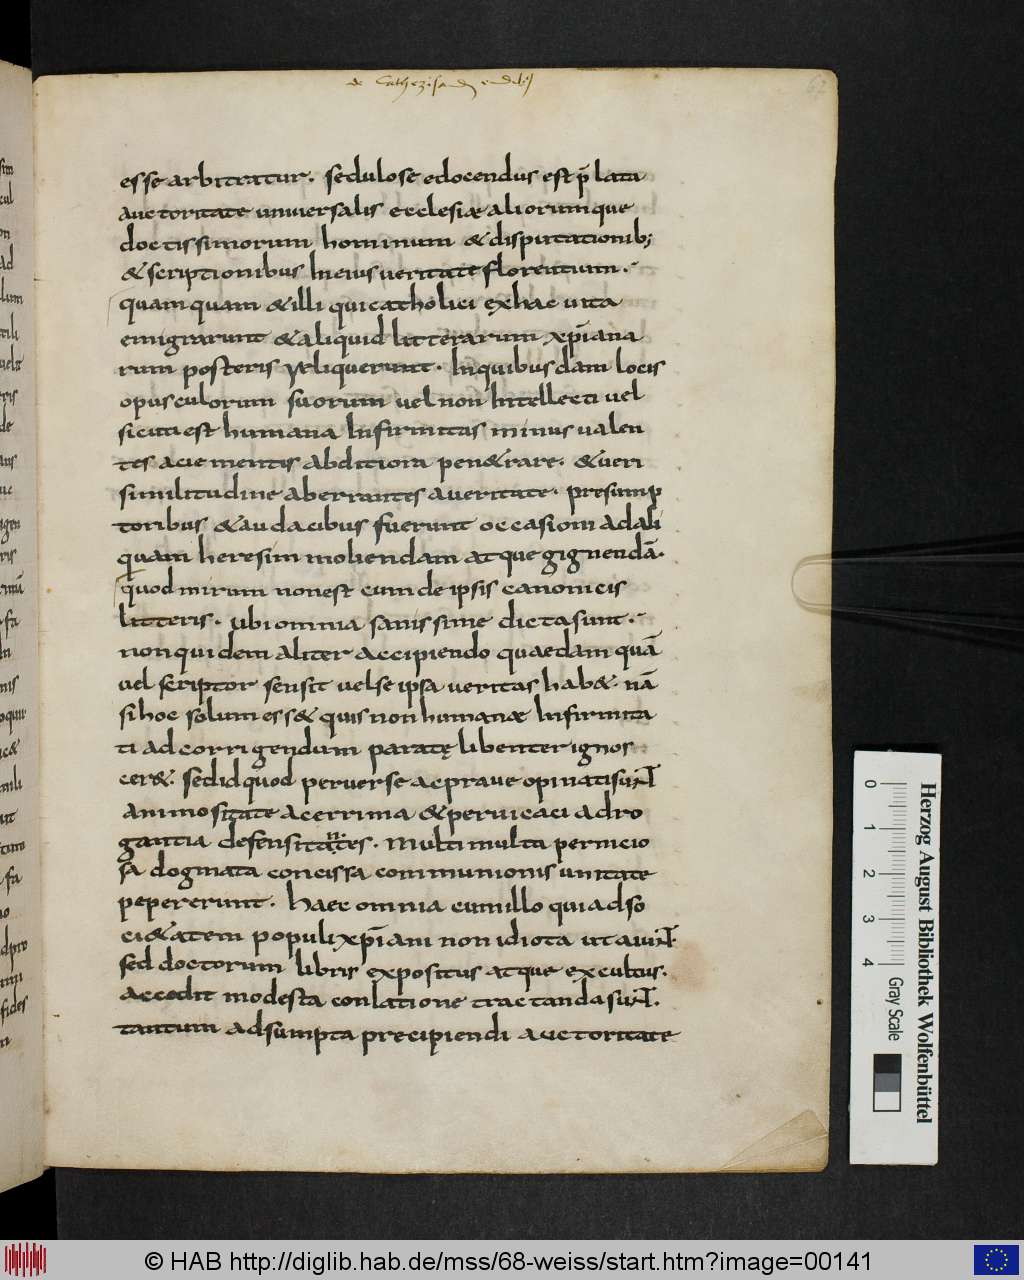 de Cathezisand
62
esse arbitratur. sedulose edocendus est p̄ lata
auctoritate uniuersalis ecclesiæ aliorumque
doctissimorum hominum & disputationib;
& scriptionibus In eius ueritate florentium.
quamquam & illi qui catholici ex hac uita
emigrarunt & aliquid litterarum xp̄iana
rum posteris reliquerunt. Inquibusdam locis
opusculorum suorum uel non Intellecti uel
sicuti est humana Infirmitas minus ualen
tes acie mentis abditiora pen&rare. & ueri
similitudine aberrantes a ueritate. presump
toribus & audacibus fuerunt occasioni ad ali
quam heresim moliendam atque gignendā.
quod mirum non est cum de ipsis canonicis
litteris. ubi omnia sanissime dicta sunt.
non quidem aliter accipiendo quaedam quā
uel scriptor sensit uel se ipsa ueritas hab&. nā
si hoc solum ess& quis non humanæ Infirmita
ti ad corrigendum paratę libenter ignos
cer&. sed id quod peruerse ac praue opinati sunt
animositate acerrima & peruicaci adro
gantia defensitantes. Multi multa pernicio
sa dogmata concissa communionis unitate
pepererunt. haec omnia cum illo qui ad so
ci&atem populi xp̄iani non idiota ut aiunt.
sed doctorum libris expositus atque excultus.
accedit modesta conlatione tractanda sunt.
tantum adsumpta precipiendi auctoritate
0
1
2
3
4
Gray Scale
Herzog August Bibliothek Wolfenbüttel
© HAB http://diglib.hab.de/mss/68-weiss/start.htm?image=00141